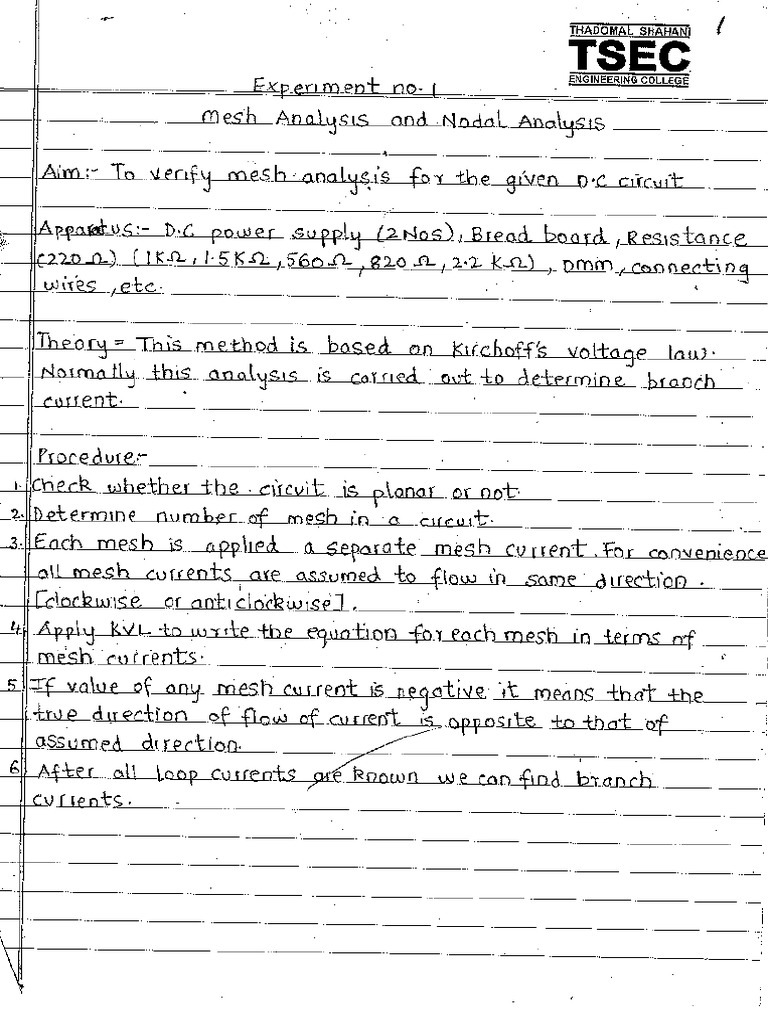 THADOMAL SHAHANI
TSEC
ENGINEERING COLLEGE
1
Experiment no. 1
Mesh Analysis and Nodal Analysis
Aim:- To verify mesh analysis for the given D.C circuit
Apparatus:- D.C power supply (2Nos), Bread board, Resistance
(220Ω) (1KΩ, 1.5KΩ, 560Ω, 820Ω, 2.2 KΩ), DMM, connecting
wires, etc.
Theory = This method is based on Kirchoff's voltage law.
Normally this analysis is carried out to determine branch
current.
Procedure:-
1. Check whether the circuit is planar or not.
2. Determine number of mesh in a circuit.
3. Each mesh is applied a separate mesh current. For convenience
all mesh currents are assumed to flow in same direction.
[clockwise or anticlockwise].
4. Apply KVL to write the equation for each mesh in terms of
mesh currents.
5 If value of any mesh current is negative it means that the
true direction of flow of current is opposite to that of
assumed direction.
6. After all loop currents are known we can find branch
currents.